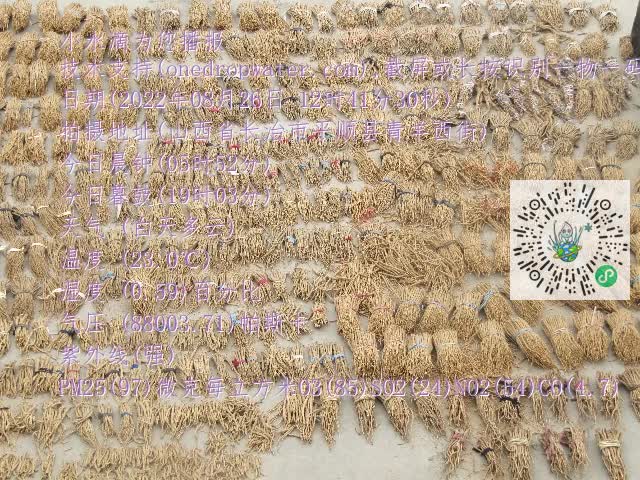 小水滴为您播报
技术支持(onedropwater.com)截屏或长按识别一物一码
日期(2022年08月26日 12时41分30秒)
拍摄地址(山西省长治市平顺县青羊西街)
今日晨钟(05时52分)
今日暮鼓(19时03分)
天气 (白天多云)
温度 (23.0℃)
湿度 (0.59)百分比
气压 (88003.71)帕斯卡
紫外线(强)
PM25(97)微克每立方米O3(85)SO2(24)NO2(54)CO(4.7)